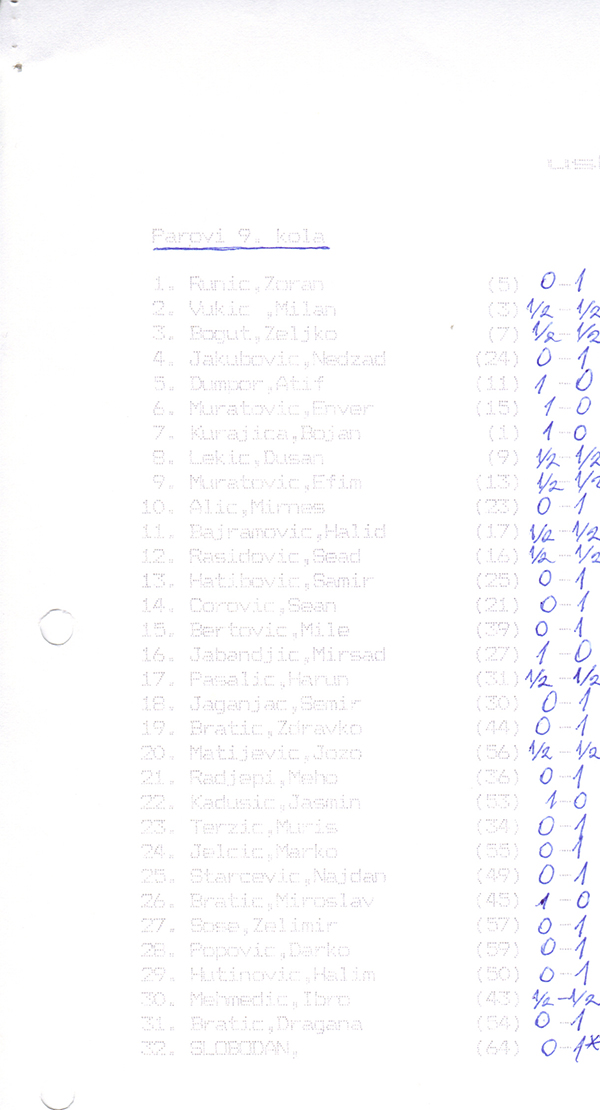 Parovi 9. kola
1. Runic,Zoran (5) 0-1
2. Vukic ,Milan (3) 1/2-1/2
3. Bogut,Zeljko (7) 1/2-1/2
4. Jakubovic,Nedzad (24) 0-1
5. Dumpor,Atif (11) 1-0
6. Muratovic,Enver (15) 1-0
7. Kurajica,Bojan (1) 1-0
8. Lekic,Dusan (9) 1/2-1/2
9. Muratovic,Efim (13) 1/2-1/2
10. Alic,Mirnes (23) 0-1
11. Bajramovic,Halid (17) 1/2-1/2
12. Rasidovic,Sead (16) 1/2-1/2
13. Hatibovic,Samir (25) 0-1
14. Corovic,Sean (21) 0-1
15. Bertovic,Mile (39) 0-1
16. Jabandjic,Mirsad (27) 1-0
17. Pasalic,Harun (31) 1/2-1/2
18. Jaganjac,Semir (30) 0-1
19. Bratic,Zdravko (44) 0-1
20. Matijevic,Jozo (56) 1/2-1/2
21. Radjepi,Meho (36) 0-1
22. Kadusic,Jasmin (53) 1-0
23. Terzic,Muris (34) 0-1
24. Jelcic,Marko (55) 0-1
25. Starcevic,Najdan (49) 0-1
26. Bratic,Miroslav (45) 1-0
27. Sose,Zelimir (57) 0-1
28. Popovic,Darko (59) 0-1
29. Hutinovic,Halim (50) 0-1
30. Mehmedic,Ibro (43) 1/2-1/2
31. Bratic,Dragana (54) 0-1
32. SLOBODAN, (64) 0-1*